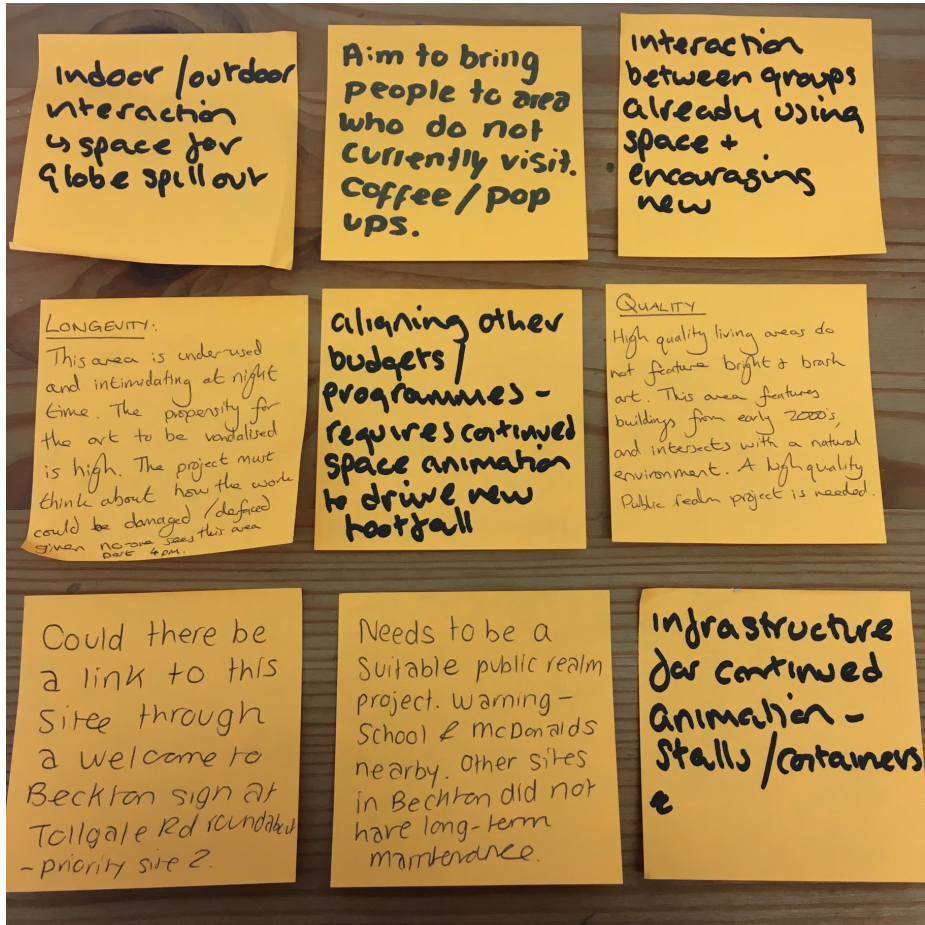 Indoor / outdoor
interaction
↳ space for
Globe spill out
Aim to bring
people to area
who do not
currently visit.
Coffee / pop
ups.
interaction
between groups
already using
space +
encouraging
new
LONGEVITY:
This area is under-used
and intimidating at night
time. The propensity for
the art to be vandalised
is high. The project must
think about how the work
could be damaged / defaced
given no-one sees this area
past 4pm.
aligning other
budgets /
programmes -
requires continued
space animation
to drive new
footfall
QUALITY
High quality living areas do
not feature bright & brash
art. This area features
buildings from early 2000's,
and intersects with a natural
environment. A high quality
Public realm project is needed.
Could there be
a link to this
site through
a welcome to
Beckton sign at
Tollgate Rd roundabout
- priority site 2.
Needs to be a
suitable public realm
project. Warning -
School & McDonalds
nearby. Other sites
in Beckton did not
have long-term
maintenance.
infrastructure
for continued
animation -
Stalls / containers